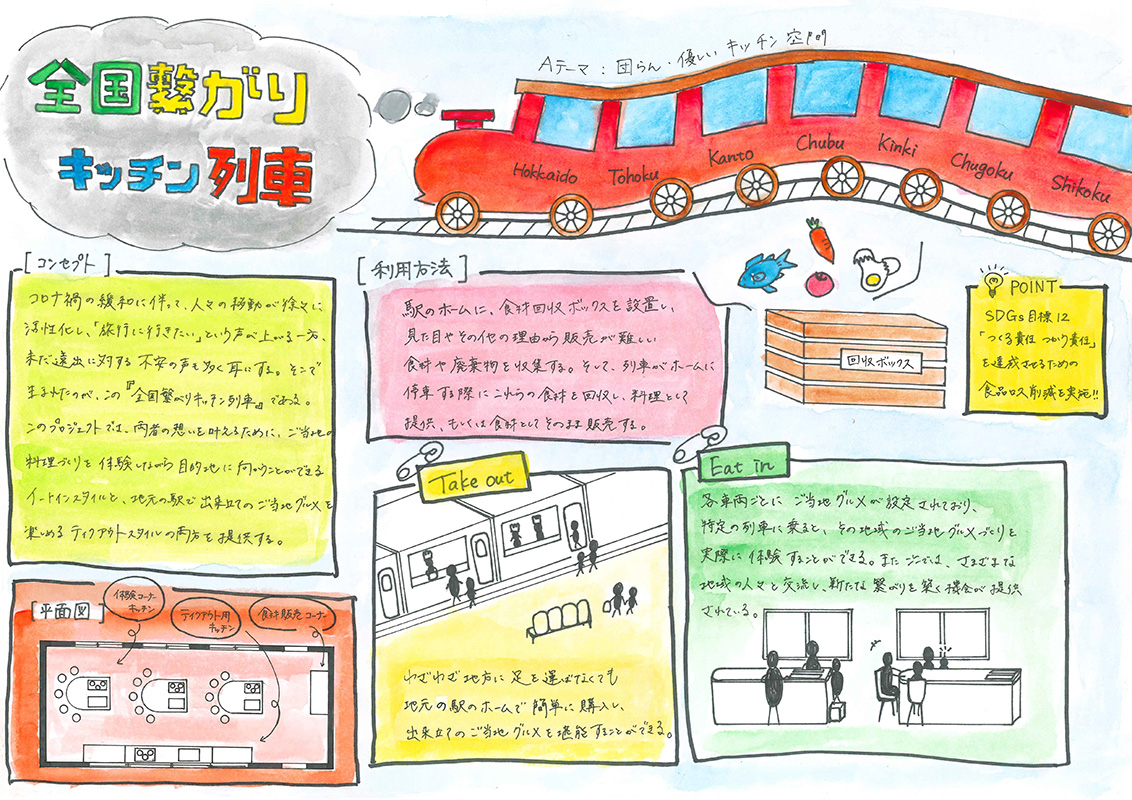 全国繋がり
キッチン列車
Aテーマ：団らん・優しいキッチン空間
Hokkaido
Tohoku
Kanto
Chubu
Kinki
Chugoku
Shikoku
[コンセプト]
コロナ禍の緩和に伴って、人々の移動が徐々に
活性化し、「旅行に行きたい」という声が上がる一方、
未だ遠出に対する不安の声も多く耳にする。そこで
生まれたのが、この『全国繋がりキッチン列車』である。
このプロジェクトでは、両者の想いを叶えるために、ご当地の
料理づくりを体験しながら目的地に向かうことができる
イートインスタイルと、地元の駅で出来立てのご当地グルメを
楽しめるテイクアウトスタイルの両方を提供する。
[利用方法]
駅のホームに、食材回収ボックスを設置し、
見た目やその他の理由から販売が難しい
食材や廃棄物を収集する。そして、列車がホームに
停車する際にこれらの食材を回収し、料理として
提供、もしくは食材としてそのまま販売する。
回収ボックス
POINT
SDGs目標12
「つくる責任 つかう責任」
を達成させるための
食品ロス削減を実施!!
[平面図]
体験コーナー
キッチン
テイクアウト用
キッチン
食材販売コーナー
Take out
わざわざ地方に足を運ばなくても
地元の駅のホームで簡単に購入し、
出来立てのご当地グルメを堪能することができる。
Eat in
各車両ごとにご当地グルメが設定されており、
特定の列車に乗ると、その地域のご当地グルメづくりを
実際に体験することができる。またここでは、さまざまな
地域の人々と交流し、新たな繋がりを築く機会が提供
されている。